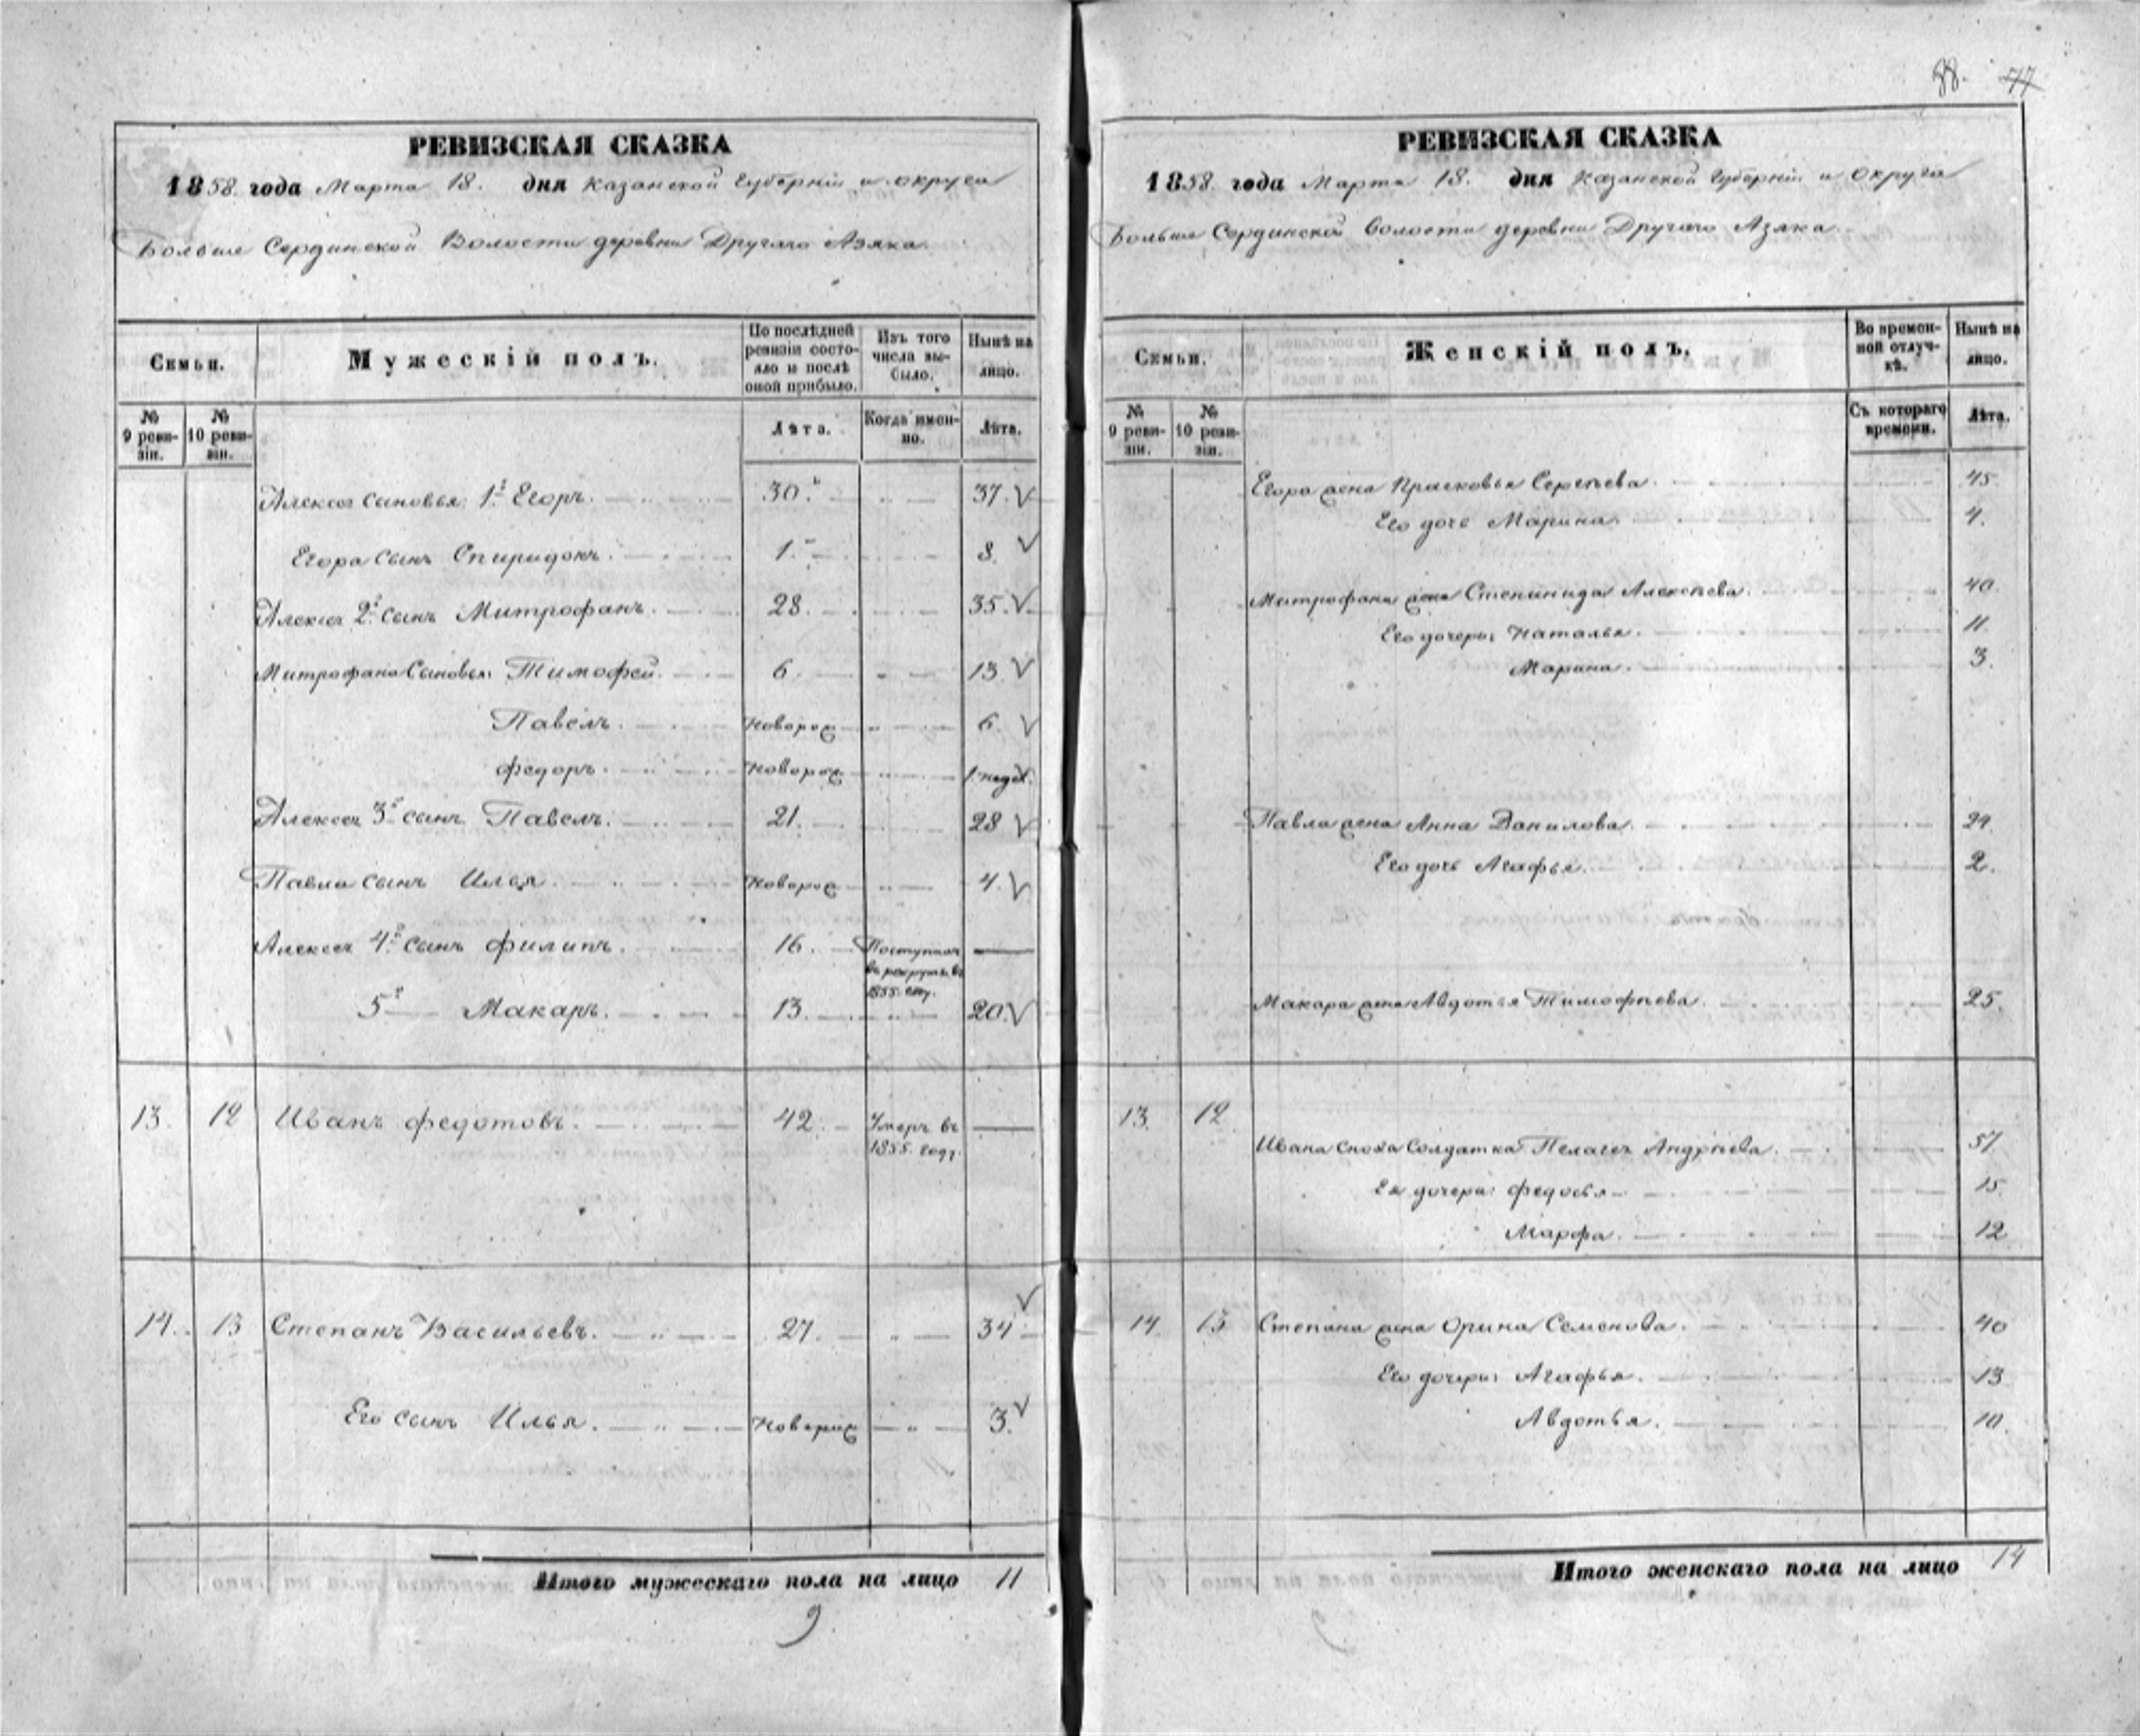 88. 77
РЕВИЗСКАЯ СКАЗКА
1858. года Марта 18. дня Казанской Губернiи и округа
Больше Сердинской Волости деревни Другаго Азяка.
Семьи.
Мужескiй полъ.
По послѣдней ревизiи состояло и послѣ оной прибыло.
Изъ того числа выбыло.
Нынѣ на лицо.
№ 9 ревизiи.
№ 10 ревизiи.
Лѣта.
Когда именно.
Лѣта.
Алексея сыновья: 1й Егоръ. 30. 37.
Егора сынъ Спиридонъ. 1. 8.
Алексея 2й сынъ Митрофанъ. 28. 35.
Митрофана Сыновья: Тимофей. 6. 13
Павелъ. новорож 6
федоръ. новорож 1. недел.
Алексея 3й сынъ Павелъ. 21. 28
Павла сынъ Илья. новорож 4.
Алексея 4й сынъ филипъ. 16. Поступилъ въ рекруты въ 1855. году.
5й Макаръ. 13. 20.
13. 12 Иванъ федотовъ. 42. Умеръ въ 1855. году.
14. 13 Степанъ Васильевъ. 27. 34
Его сынъ Илья. новорож 3.
Итого мужескаго пола на лицо 11
9
РЕВИЗСКАЯ СКАЗКА
1858. года Марта 18. дня Казанской Губернiи и округа
Больше Сердинской волости деревни Другаго Азяка.
Семьи.
Женскiй полъ.
Во временной отлучкѣ.
Нынѣ на лицо.
№ 9 ревизiи.
№ 10 ревизiи.
Съ котораго времени.
Лѣта.
Егора жена Прасковья Сергѣева. 45
Его дочь Марина. 4.
Митрофана жена Степанида Алексѣева. 40.
Его дочери: Наталья. 11.
Марина. 3.
Павла жена Анна Данилова. 29.
Его дочь Агафья. 2.
Макара жена Авдотья Тимофѣева. 25.
13. 12.
Ивана сноха Солдатка Пелагея Андрѣева. 37.
Ея дочери: федосья 15.
Марфа. 12
14 13 Степана жена Орина Семенова. 40
Его дочери: Агафья. 13
Авдотья. 10.
Итого женскаго пола на лицо 14